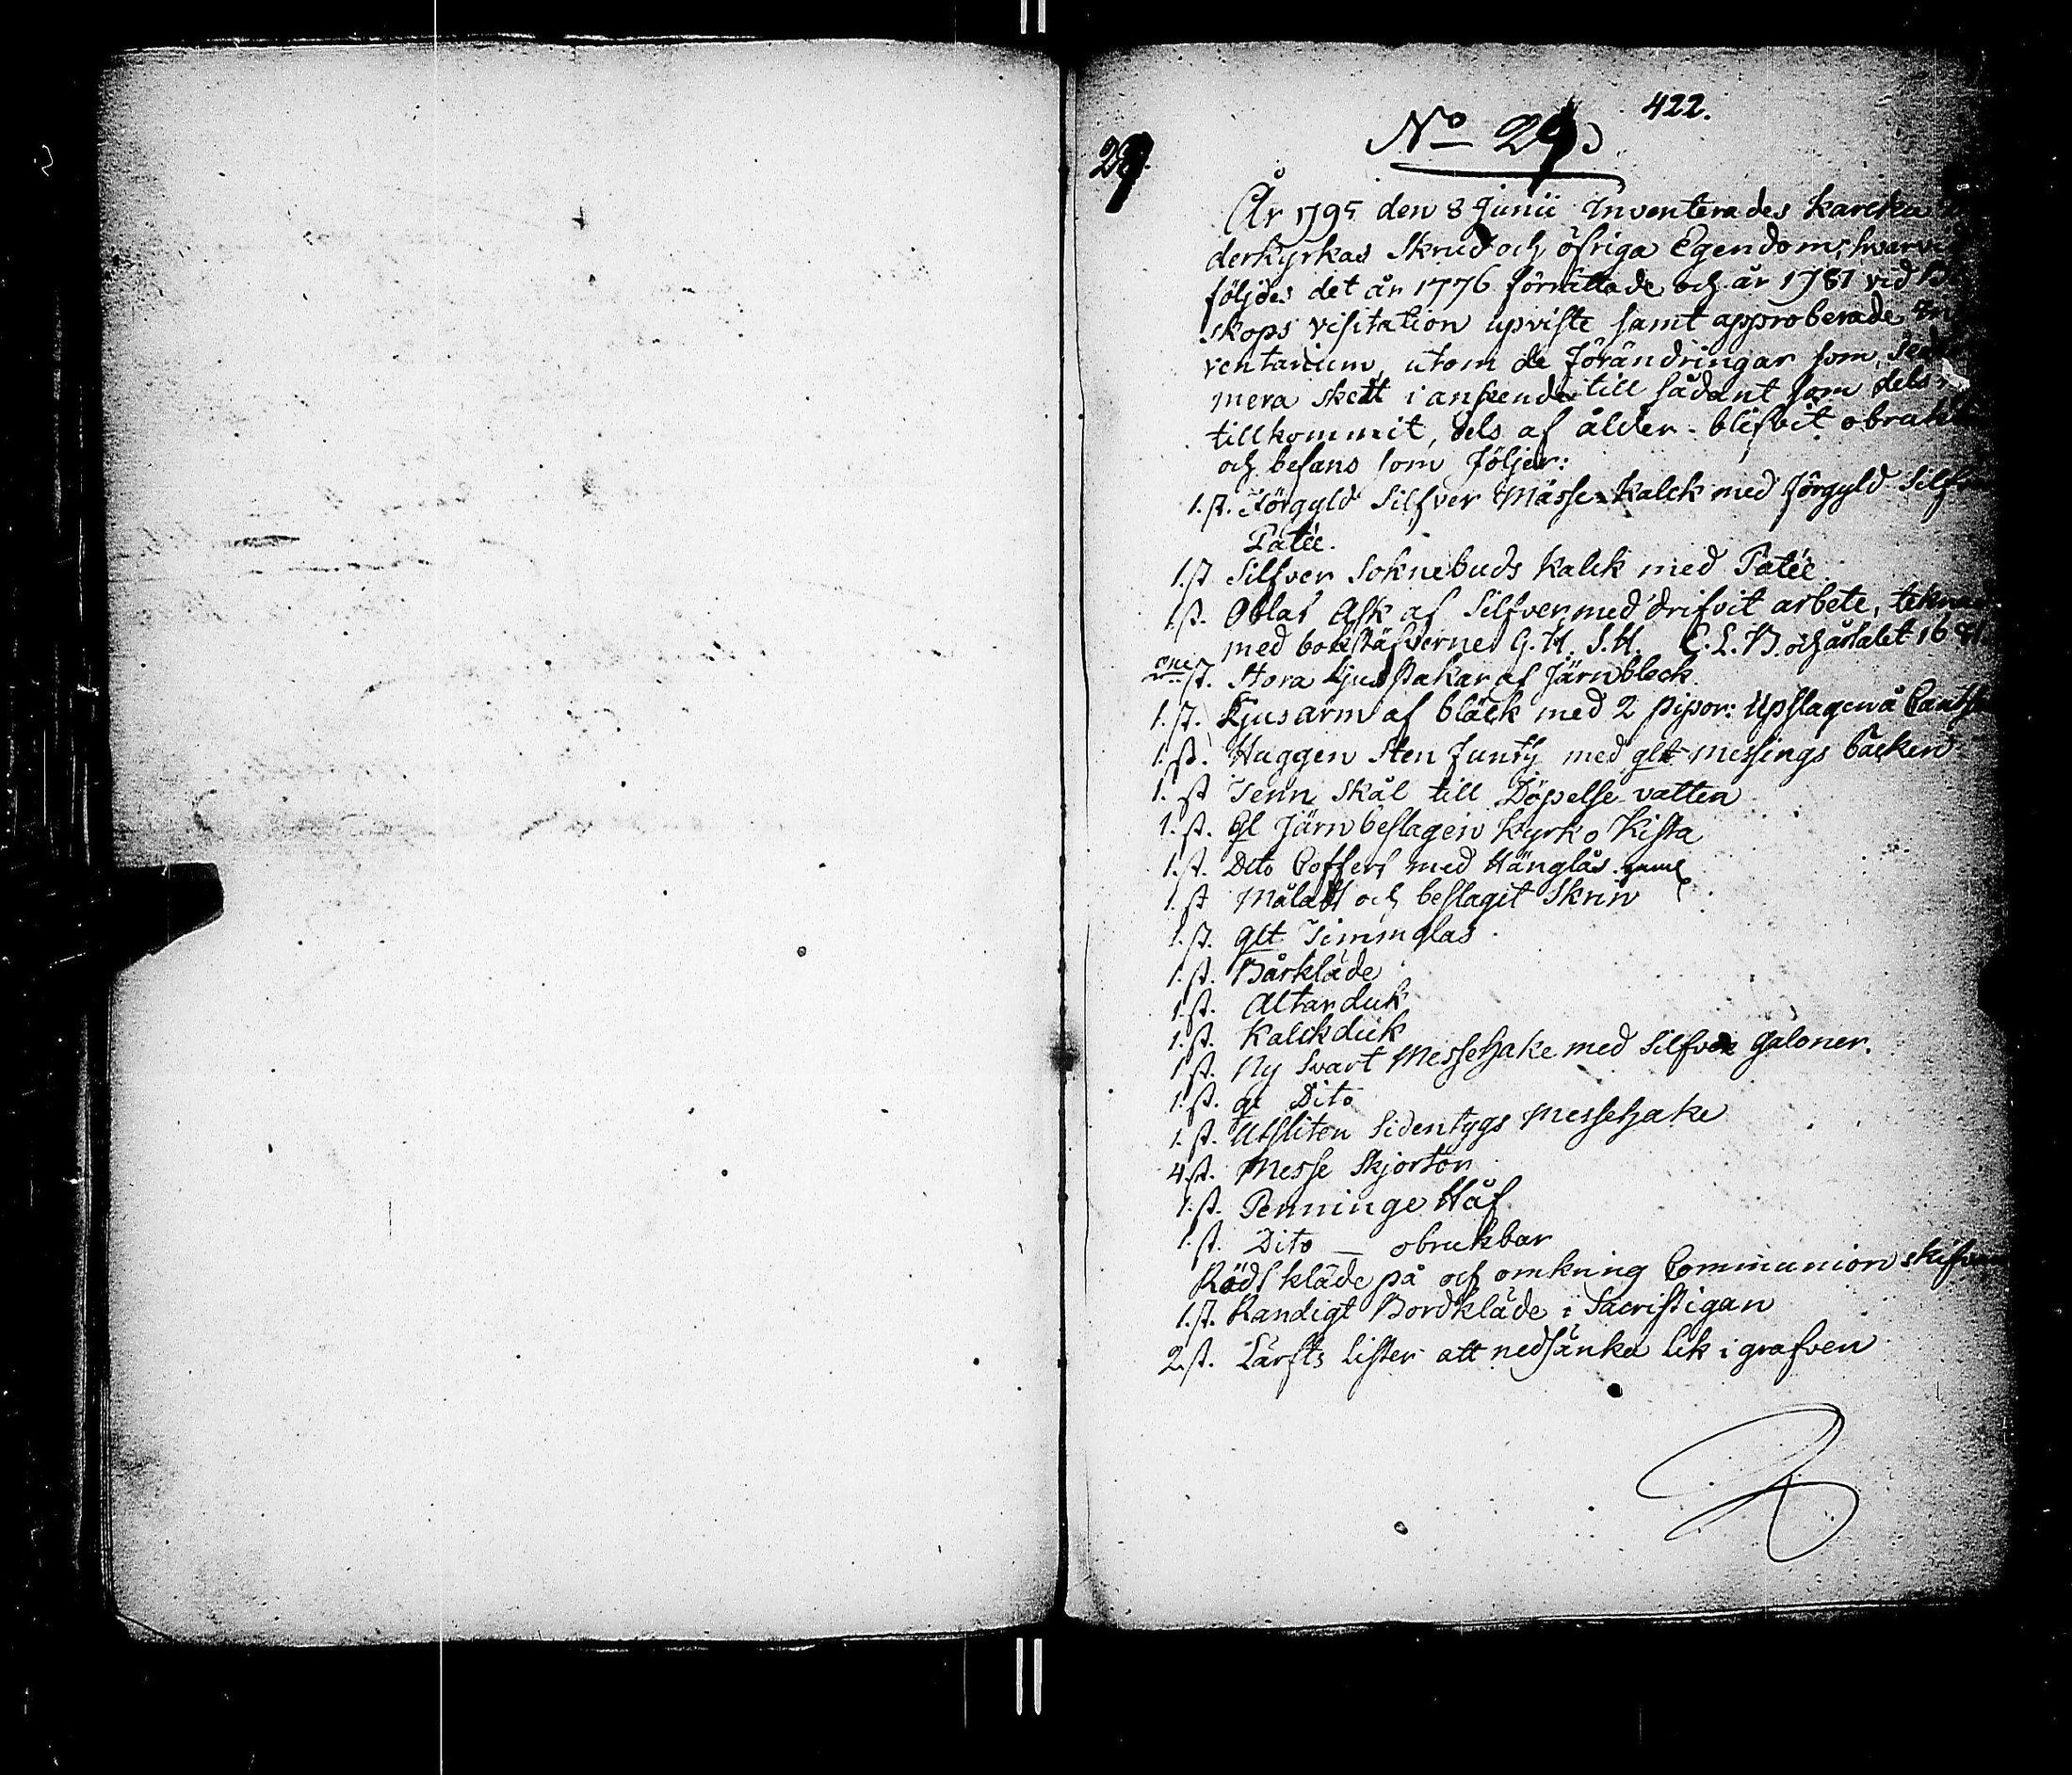 422.
No 29
29.
År 1795 den 8 Junii Inventerades Kareka
derkyrkas Skrud och öfriga Egendom, hvarvid
följdes det år 1776 förrättade och år 1781 vid Bi
skops Visitation upviste samt approberade In
ventarium, utom de förändringar som seder
mera skett i anseende till sådant som dels
tillkommit, dels af ålder blifvit obrukb
och befans som följer:
1. st. Förgyld Silfver Mässe Kalck med förgyld Silfver
Patée.
1. st Silfver Soknebuds Kalck med Patée
1. st. Oblat Ask af Silfver med drifvit arbete, teknad
med bokstäfverne G. H. S. H. E. L. B. och årtalet 1681
st. Stora Ljusstakar af Järnbleck.
1. st. Ljusarm af bläck med 2 pipor: Upslagen å
1. st. Huggen Sten Funty med glt messings bäcken
1. st Tenn Skål till Döpelse vatten
1. st. Gl Järnbeslagen Kyrko Kista
1. st. Dito Coffert med Hänglås. gaml
1. st Målatt och beslagit Skrin
1. st. Glt Timmglas.
1. st. Bårkläde
1. st. Altarduk
1. st. Kalckduk
1. st. Ny Svart Messehake med Silfver Galoner.
1. st. gl Dito
1. st. Utsliten Sidentygs Messehake
4. st. Messe Skjortor
1. st. Penninge Håf
1. st. Dito — obrukbar
Rödt kläde på och omkring Communion skifvan
1. st. Randigt Bordkläde i Sacristigan
2. st. Lärfts lister att nedsänka lik i grafven